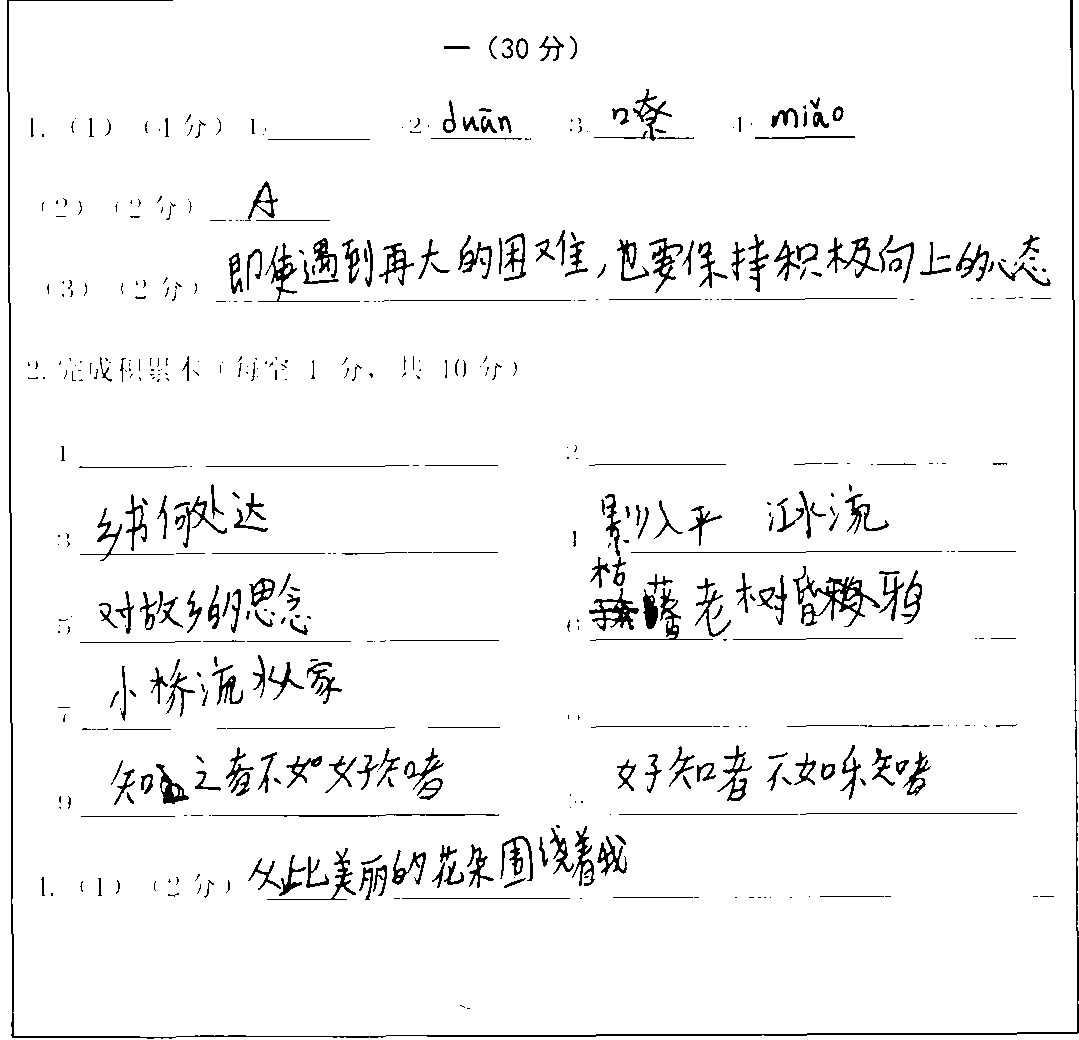 一（30 分）
1.（1）（4 分）1. 2. duān 3. 嘹 4. miǎo
（2）（2 分） A
（3）（2 分） 即使遇到再大的困难，也要保持积极向上的心态
2. 完成积累本（每空 1 分，共 10 分）
1 2
3 乡书何处达 4 影入平 江水流
5 对故乡的思念 6 枯藤老树昏鸦
7 小桥流水人家
9 知之者不如好知者 好知者不如乐知者
1.（1）（2 分） 从此美丽的花朵围绕着我